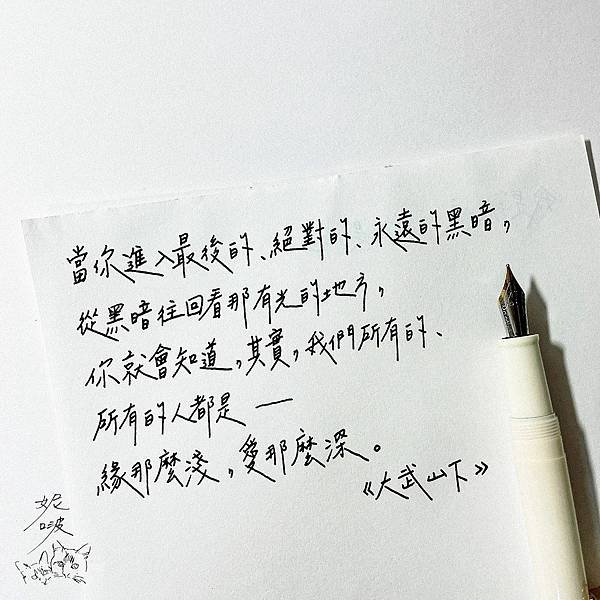 當你進入最後的、絕對的、永遠的黑暗，
從黑暗往回看那有光的地方，
你就會知道，其實，我們所有的、
所有的人都是——
緣那麼淺，愛那麼深。
《大武山下》
妮
啵